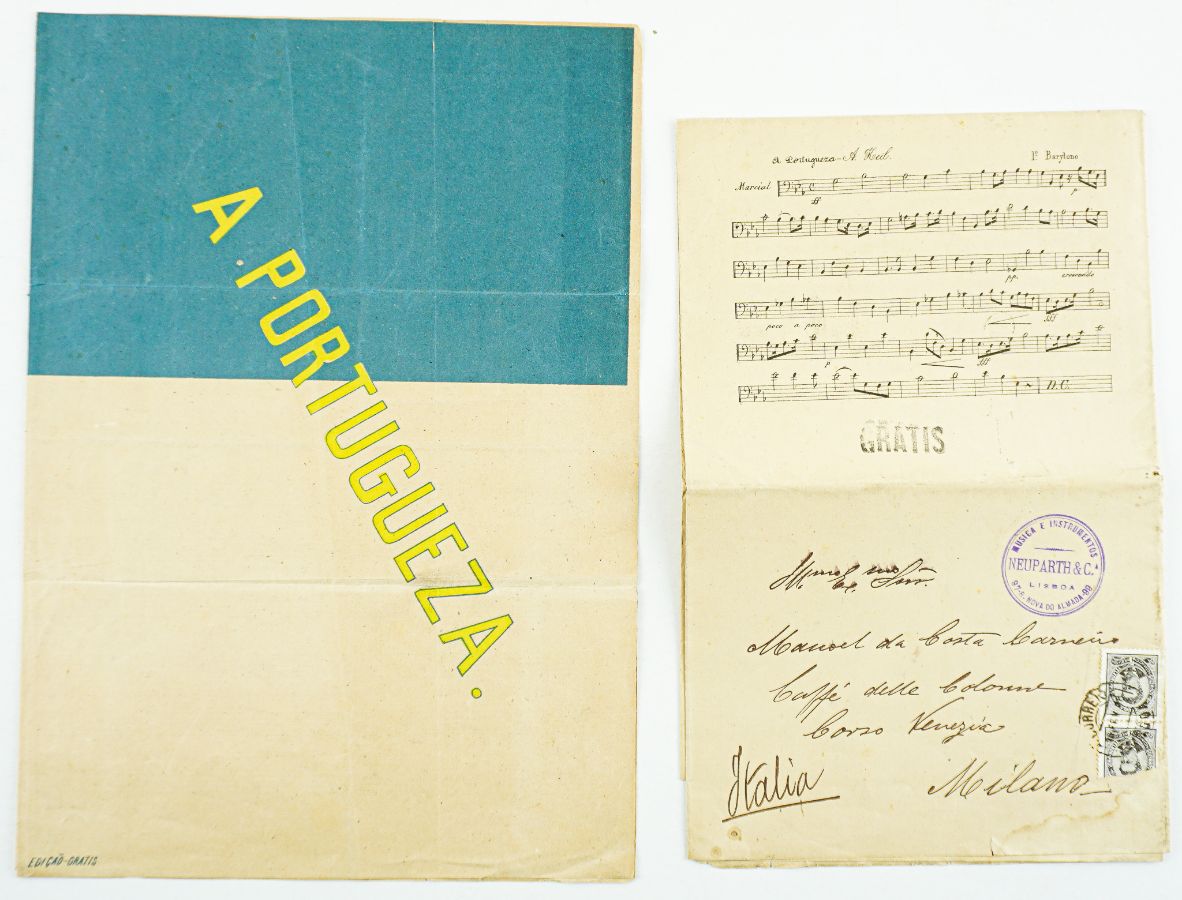 A PORTUGUEZA.
EDIÇÃO-GRATIS
A Portugueza - A. Keil.
1º Barytono
Marcial
ff
p
pp.
crescendo
poco a poco
fff
p
fff
D.C.
GRATIS
MUSICA E INSTRUMENTOS
NEUPARTH & C.
LISBOA
97-R. NOVA DO ALMADA-99
Exmo Snr.
Manoel da Costa Carneiro
Caffé delle Colonne
Corso Venezia
Milano
Italia
CORREIO